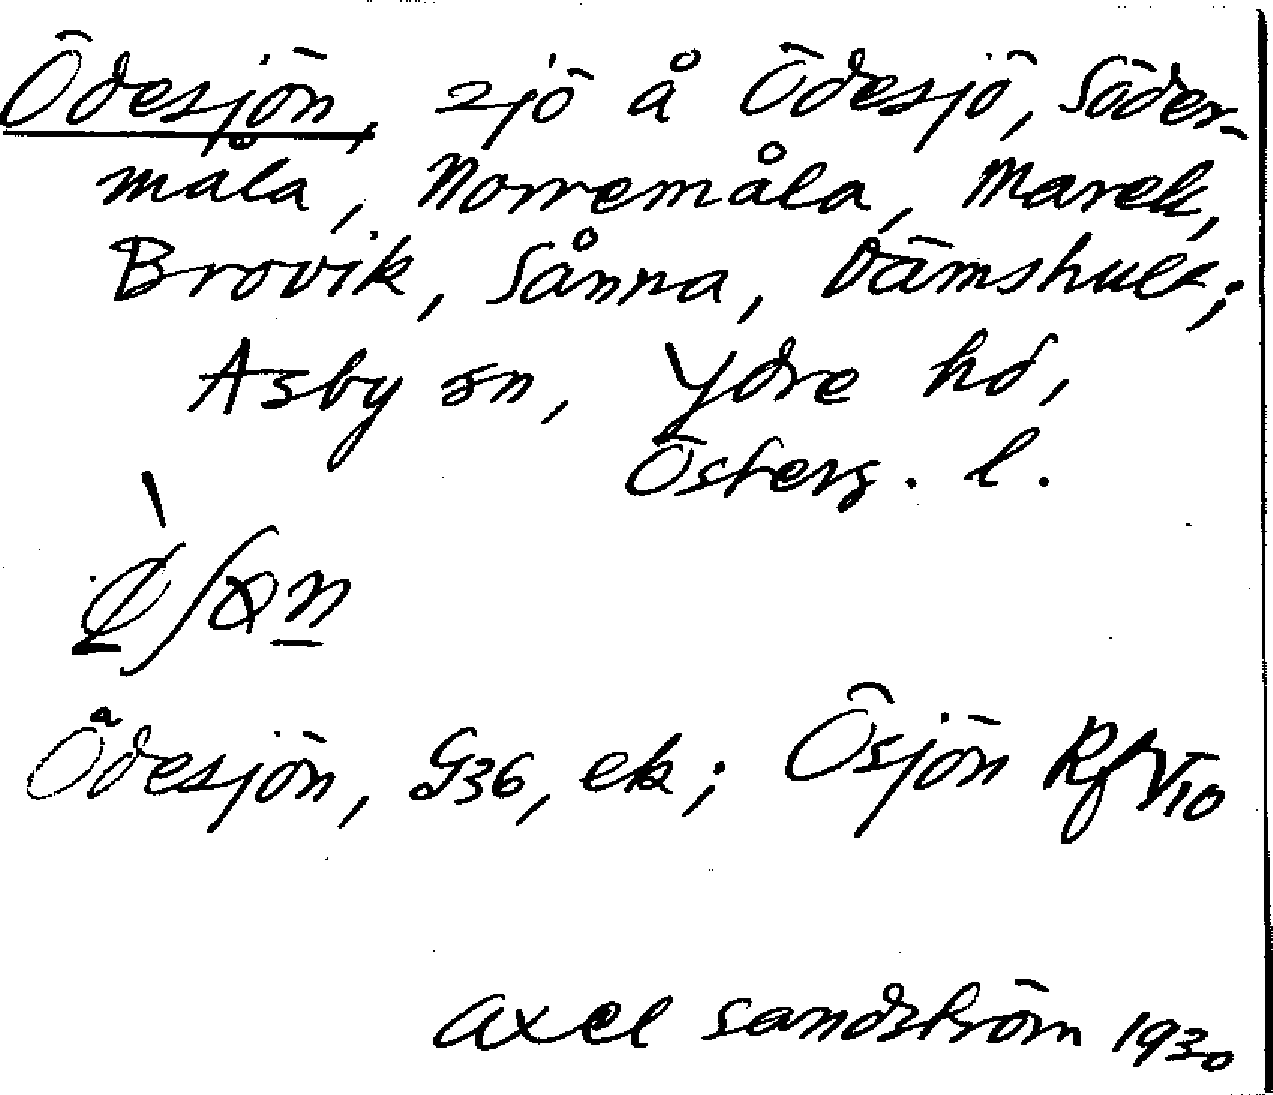 Ödesjön, sjö å Ödesjö, Söder-
måla, Norremåla, Marek,
Brovik, Sånna, Dämshult;
Asby sn, Ydre hd,
Österg. l.
Ödesjön, G36, ek; Ösjön Rf V10
Axel Sandström 1930